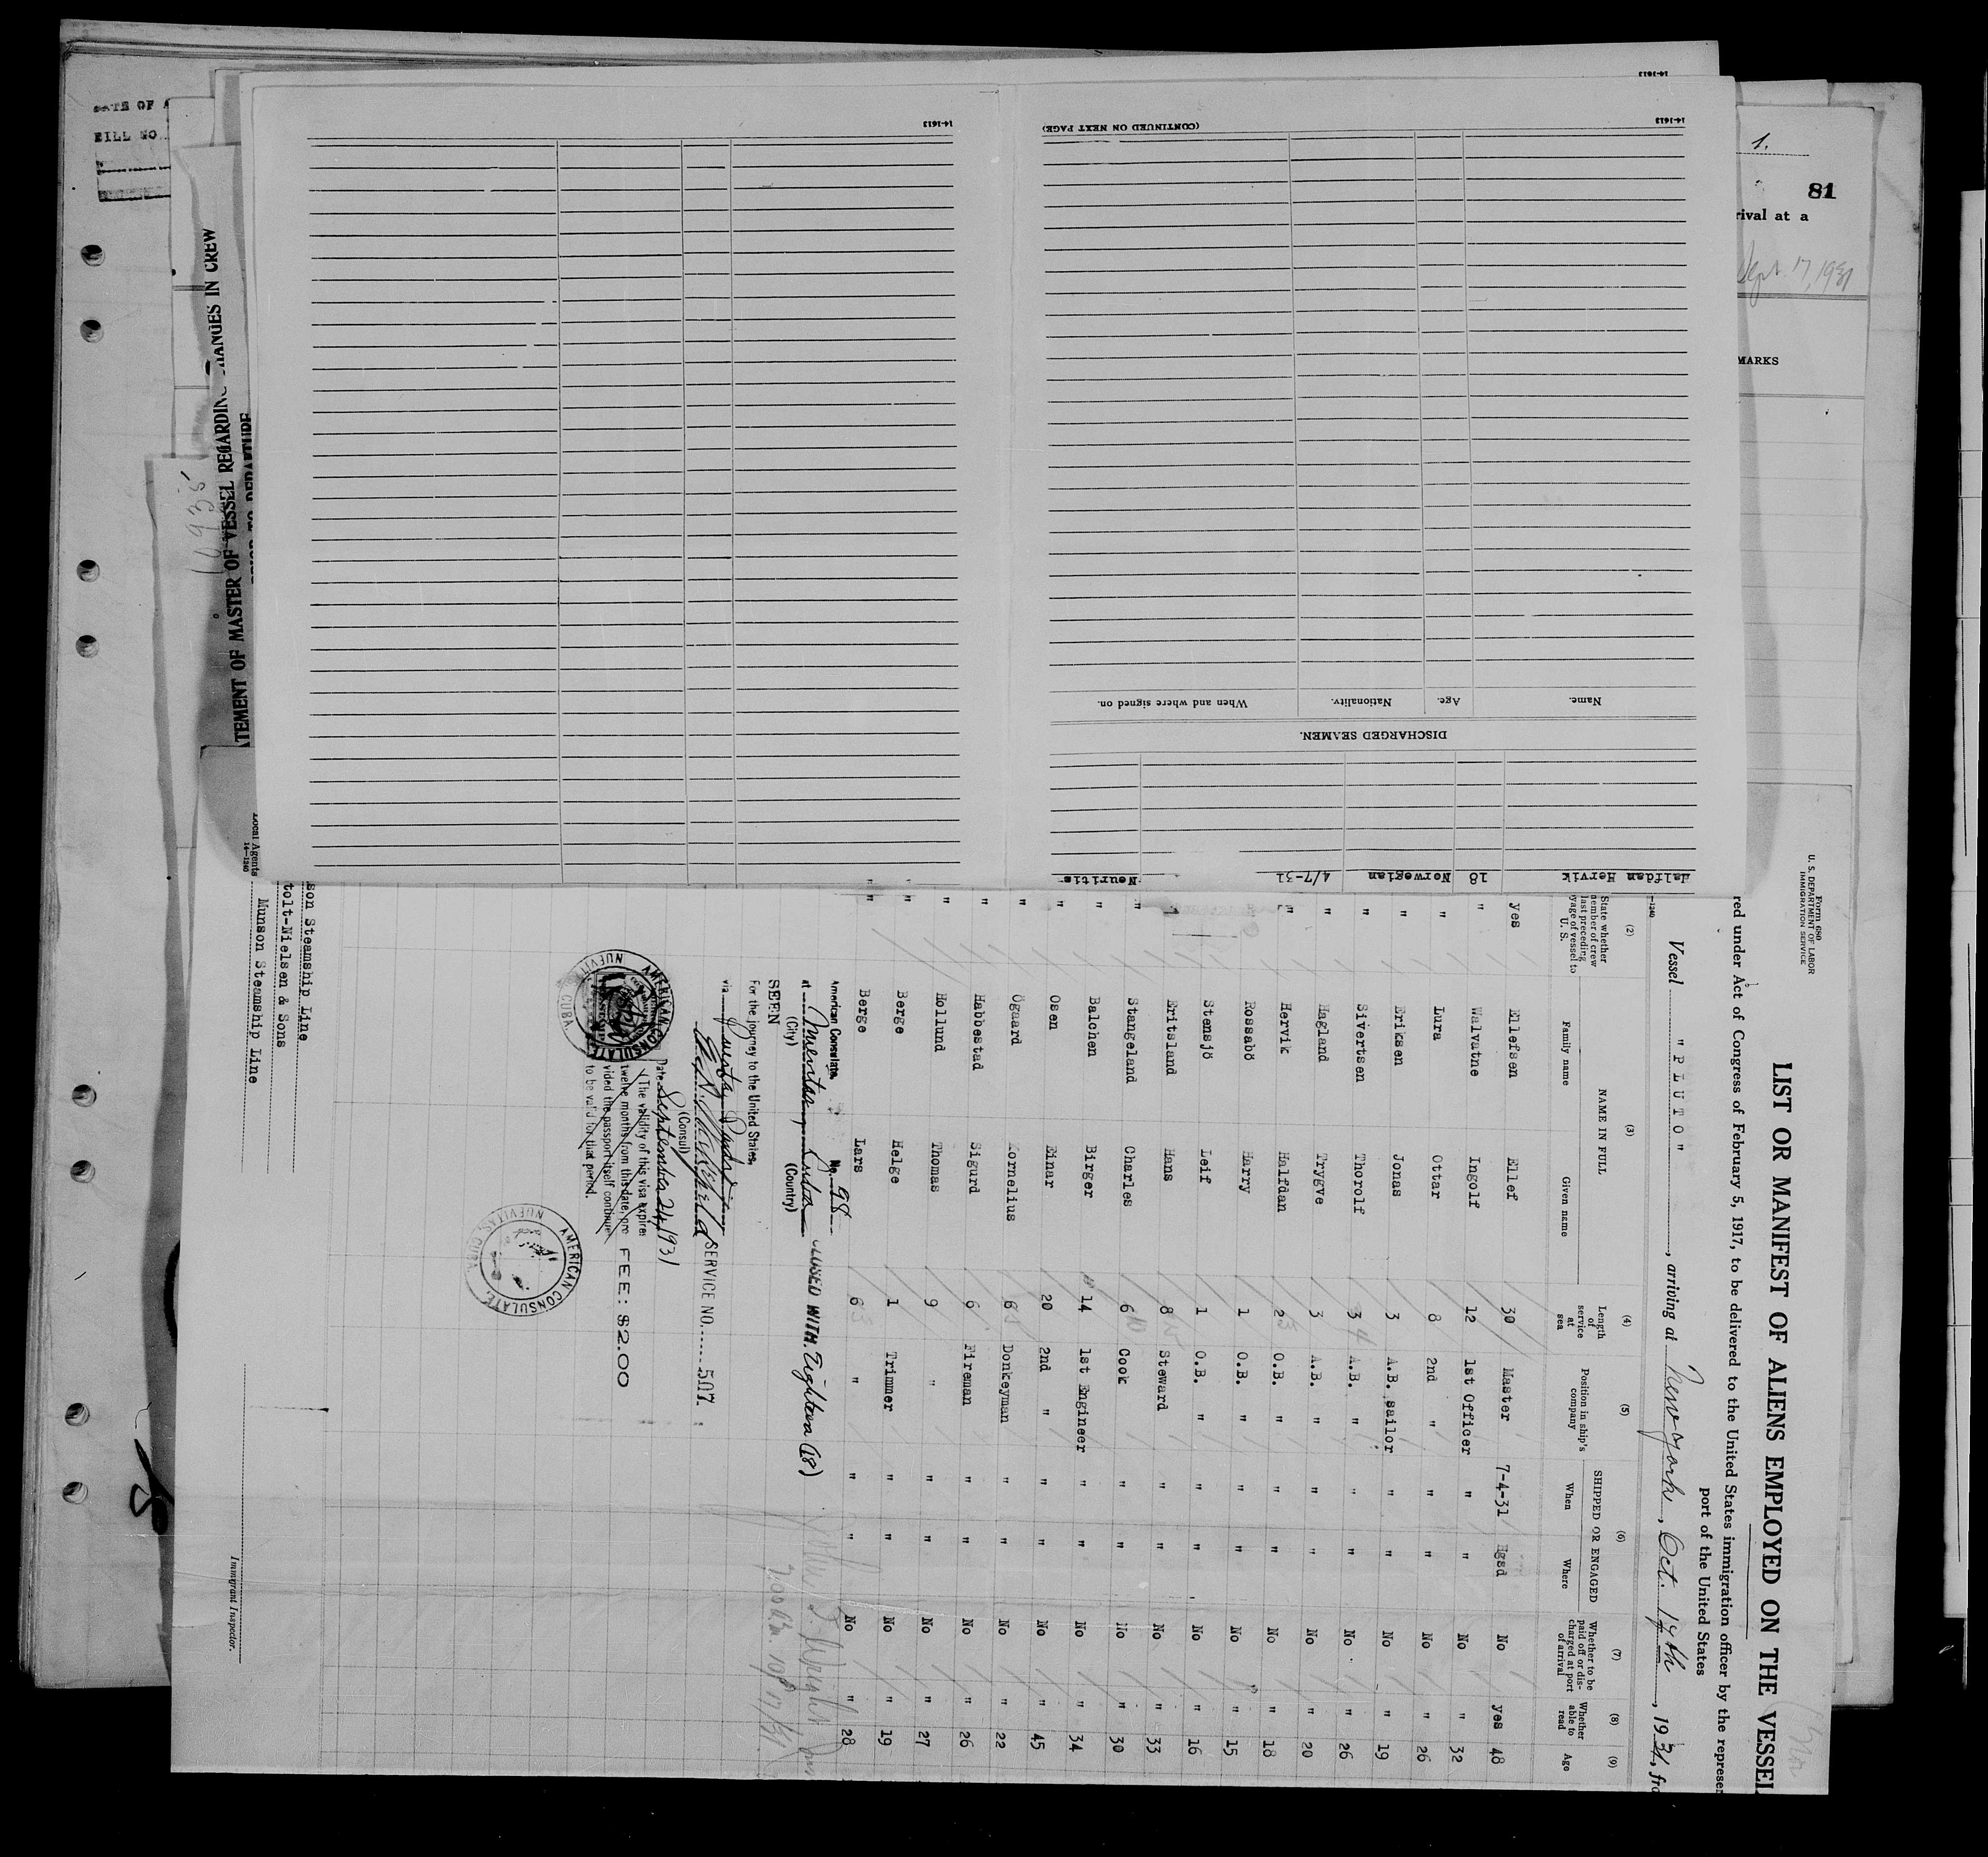 DATE OF
BILL NO.
1.
81
rival at a
Sept. 17, 1931
MARKS
ATEMENT OF MASTER OF VESSEL REGARDING CHANGES IN CREW
PRIOR TO DEPARTURE
14-1613
14-1613
(CONTINUED ON NEXT PAGE)
14-1613
Name. Age. Nationality. When and where signed on.
DISCHARGED SEAMEN.
Halfdan Hervik 18 Norwegian 4/7-31 Neuritis
Form 680
U. S. DEPARTMENT OF LABOR
IMMIGRATION SERVICE
LIST OR MANIFEST OF ALIENS EMPLOYED ON THE VESSEL
red under Act of Congress of February 5, 1917, to be delivered to the United States immigration officer by the represen
port of the United States
Vessel "PLUTO", arriving at New York, Oct. 17th, 1931, fro
(2) (3) (4) (5) (6) (7) (8) (9)
NAME IN FULL SHIPPED OR ENGAGED
State whether member of crew last preceding voyage of vessel to U. S. Family name Given name Length of service at sea Position in ship's company When Where Whether to be paid off or discharged at port of arrival Whether able to read Age
yes Ellefsen Ellef 30 Master 7-4-31 Hgsd No yes 48
" Walvatne Ingolf 12 1st Officer " " No " 32
" Lura Ottar 8 2nd " " " No " 26
" Eriksen Jonas 3 A.B. sailor " " No " 19
" Sivertsen Thorolf 3 A.B. " " " No " 26
" Hagland Trygve 3 A.B. " " " No " 20
" Hervik Halfdan 2 O.B. " " " No " 18
Rossabö Harry 1 O.B. " " " No " 15
Stensjö Leif 1 O.B. " " " No " 16
" Eritsland Hans 8 Steward " " No " 33
" Stangeland Charles 6 Cook " " No " 30
" Balchen Birger 14 1st Engineer " " No " 34
" Osen Einar 20 2nd " " " No " 45
" Ögaard Kornelius 6 Donkeyman " " No " 22
" Habbestad Sigurd 6 Fireman " " No " 26
" Hollund Thomas 9 " " " No " 27
" Berge Helge 1 Trimmer " " No " 19
" Berge Lars 6 " " " No " 28
American Consulate No. 98
at Nuevitas, Cuba CLOSED WITH Eighteen (18)
(City) (Country)
SEEN
For the journey to the United States,
via Puerto Padre
SERVICE NO. 507
(Consul)
Date September 24, 1931
(The validity of this visa expires
twelve months from this date, pro
vided the passport itself continue
to be valid for that period.
FEE: $2.00
AMERICAN CONSULATE
NUEVITAS, CUBA
AMERICAN CONSULATE
NUEVITAS, CUBA
son Steamship Line
tolt-Nielsen & Sons
Munson Steamship Line
Local Agents
14-1240
Immigrant Inspector.